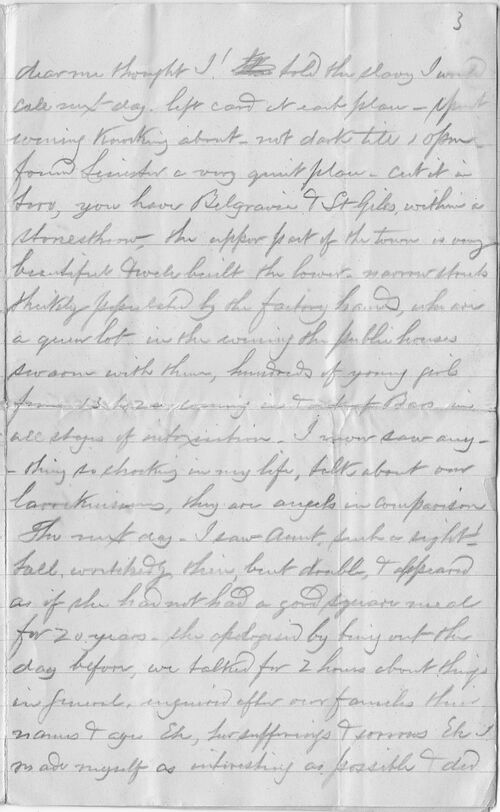 3
dear me thought I! told the slavy I would
call next day. left card at each place - spent
evening knocking about - not dark till 10pm -
found Leinster a very quiet place - cut it in
two, you have Belgravia & St Giles, within a
stonesthrow, the upper part of the town is very
beautiful & well built the lower - narrow streets
thickly populated by the factory hands, who are
a queer lot in the evening the public houses
swarm with them, hundreds of young girls
from 13 to 20, coming in & out of Bars in
all stages of intoxication - I never saw any-
- thing so shocking in my life, talk about our
larrikinism, they are angels in comparison
The next day - I saw Aunt, such a sight!
tall, wretchedly thin, bent double, & appeared
as if she had not had a good square meal
for 20 years - she apologised by being out the
day before, we talked for 2 hours about things
in general, enquired after our families their
names & ages Etc, her sufferings & sorrows Etc I
made myself as interesting as possible & did